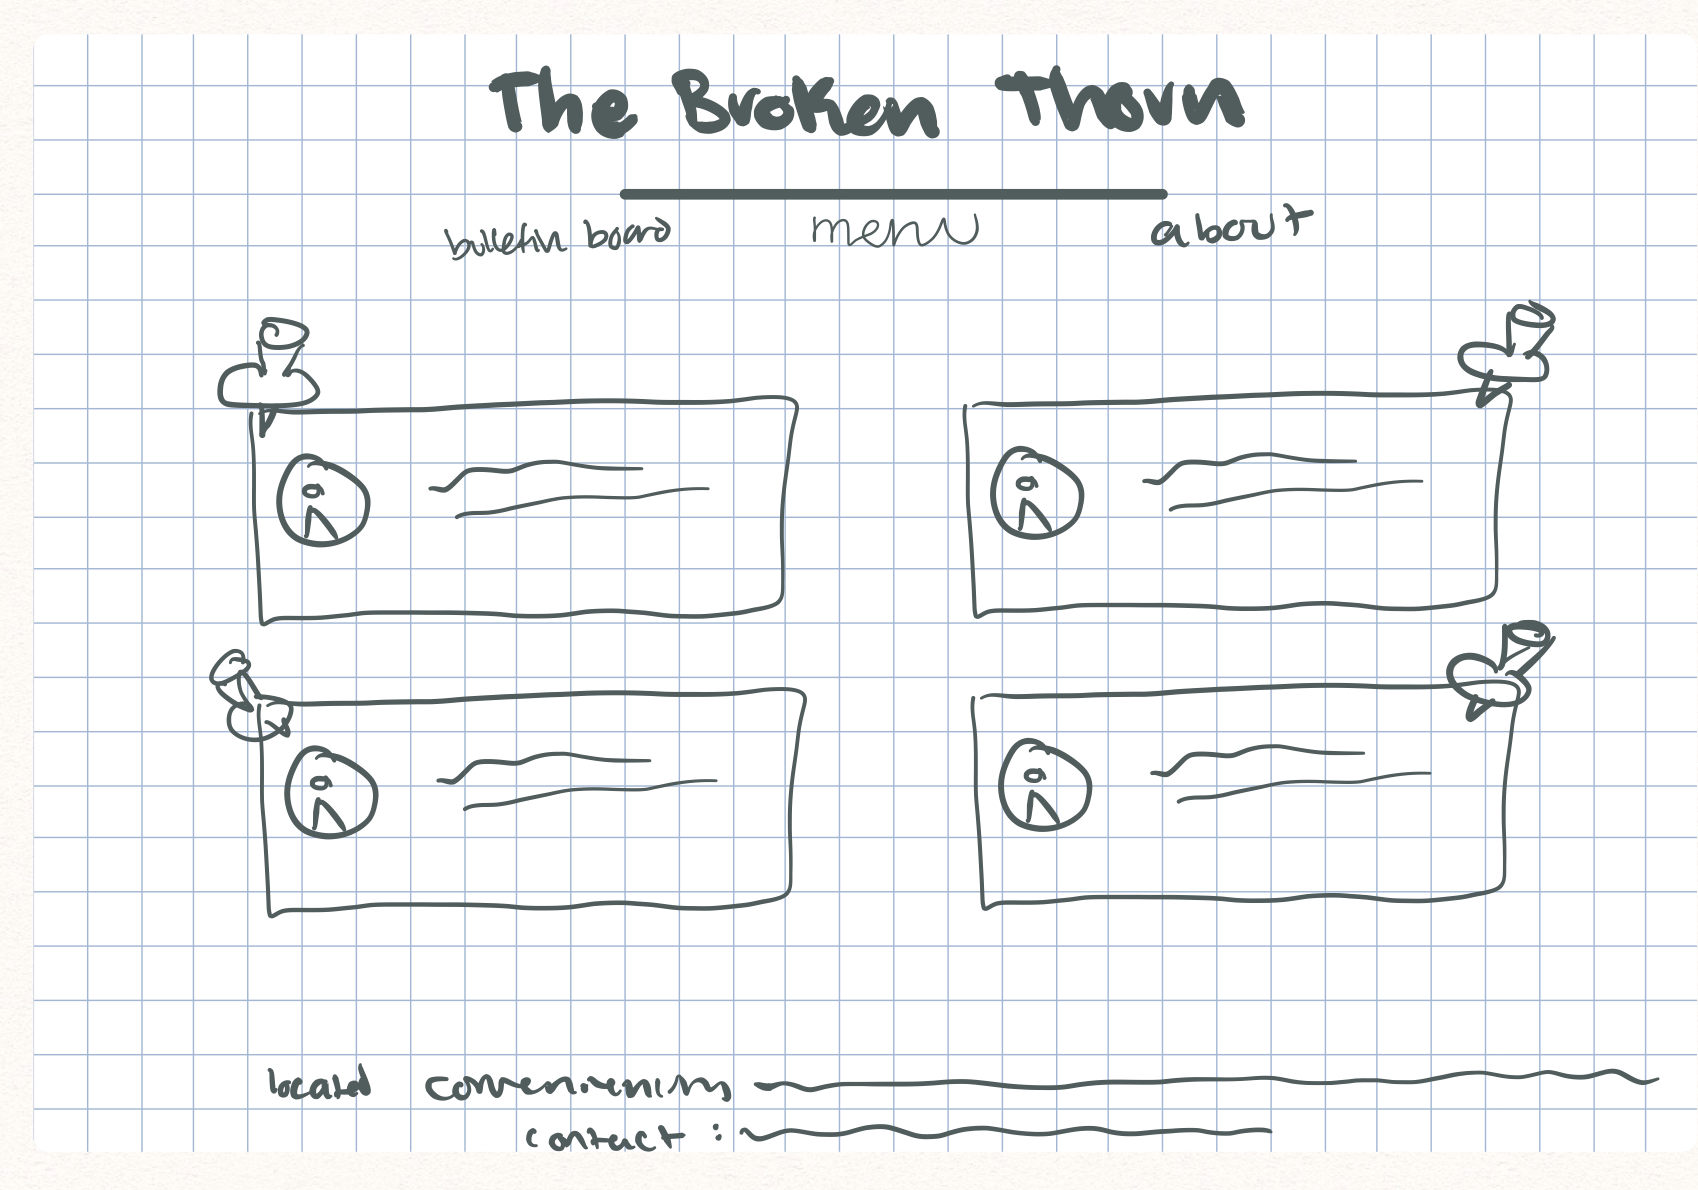 The Broken Thorn
bulletin board menu about
located conveniently
contact :